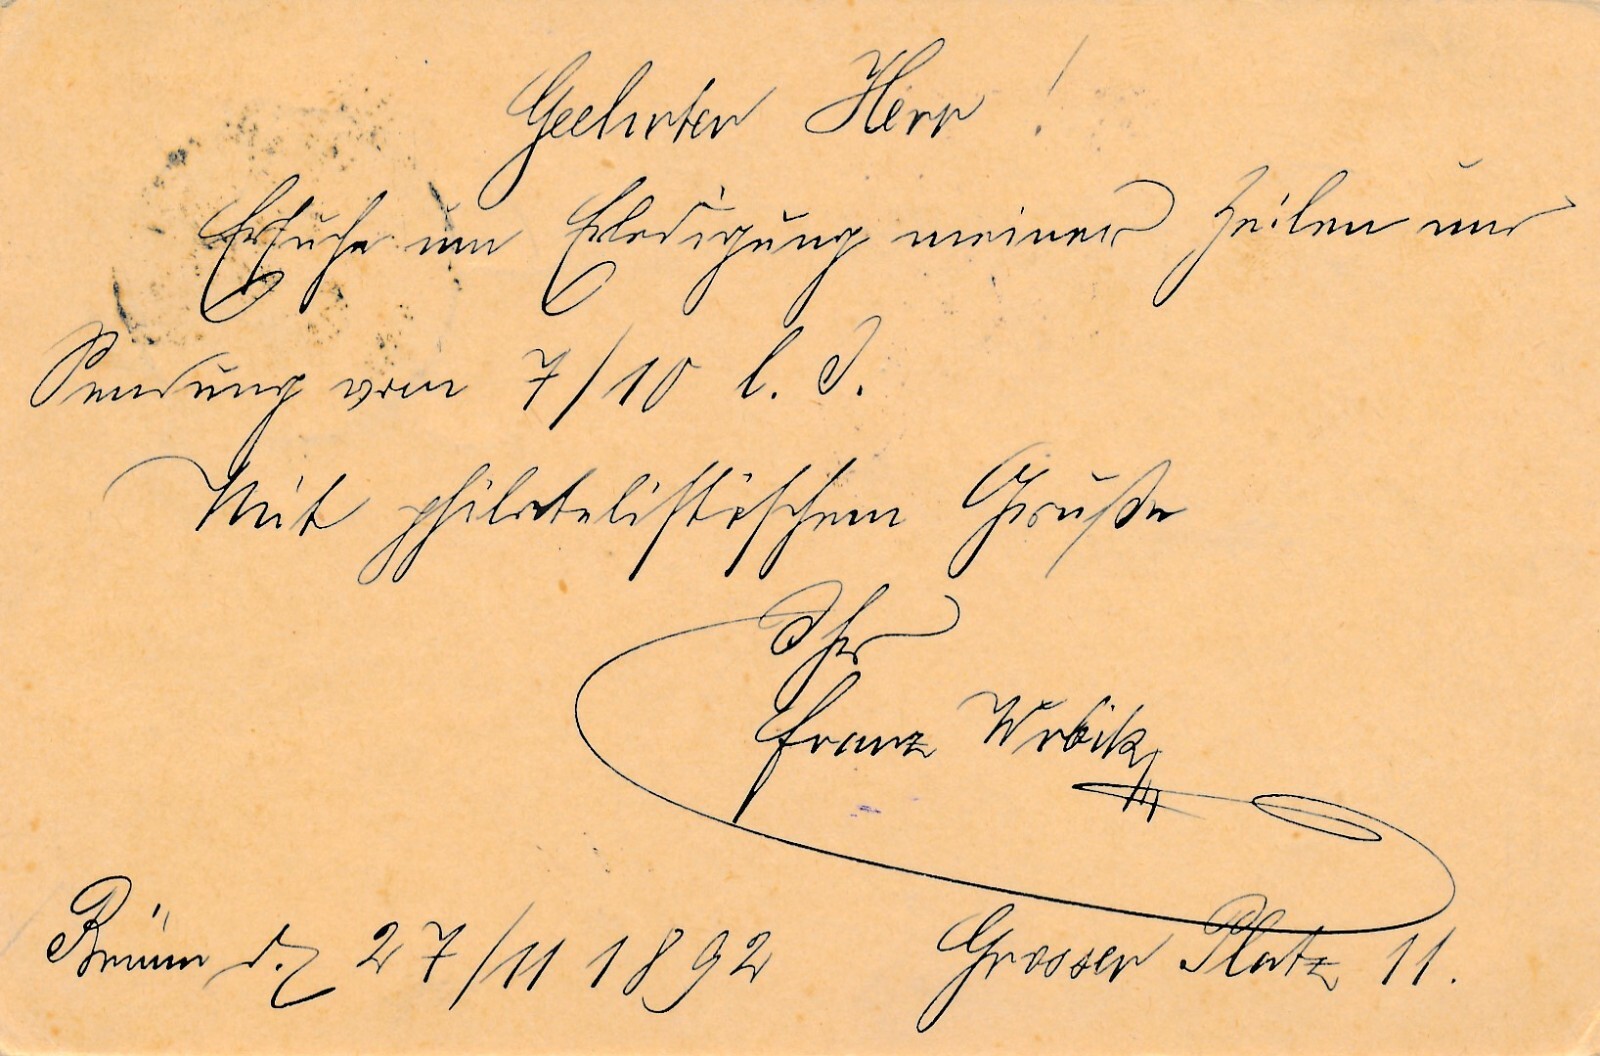 Geehrter Herr!
Ersuche um Erledigung meiner Zeilen und
Sendung vom 7/10 l. J.
Mit philatelistischem Gruße
Ihr
Franz Wrbik
Brünn d. 27/11 1892 Grosser Platz 11.